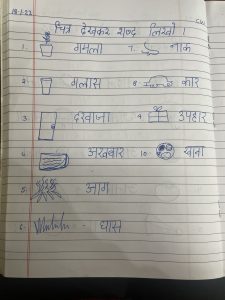 चित्र देखकर शब्द लिखो।
1. गमला 7. नाक
2. गलास 8. कार
3. दरवाजा 9. उपहार
4. अखबार 10.
5. आग
6. घास